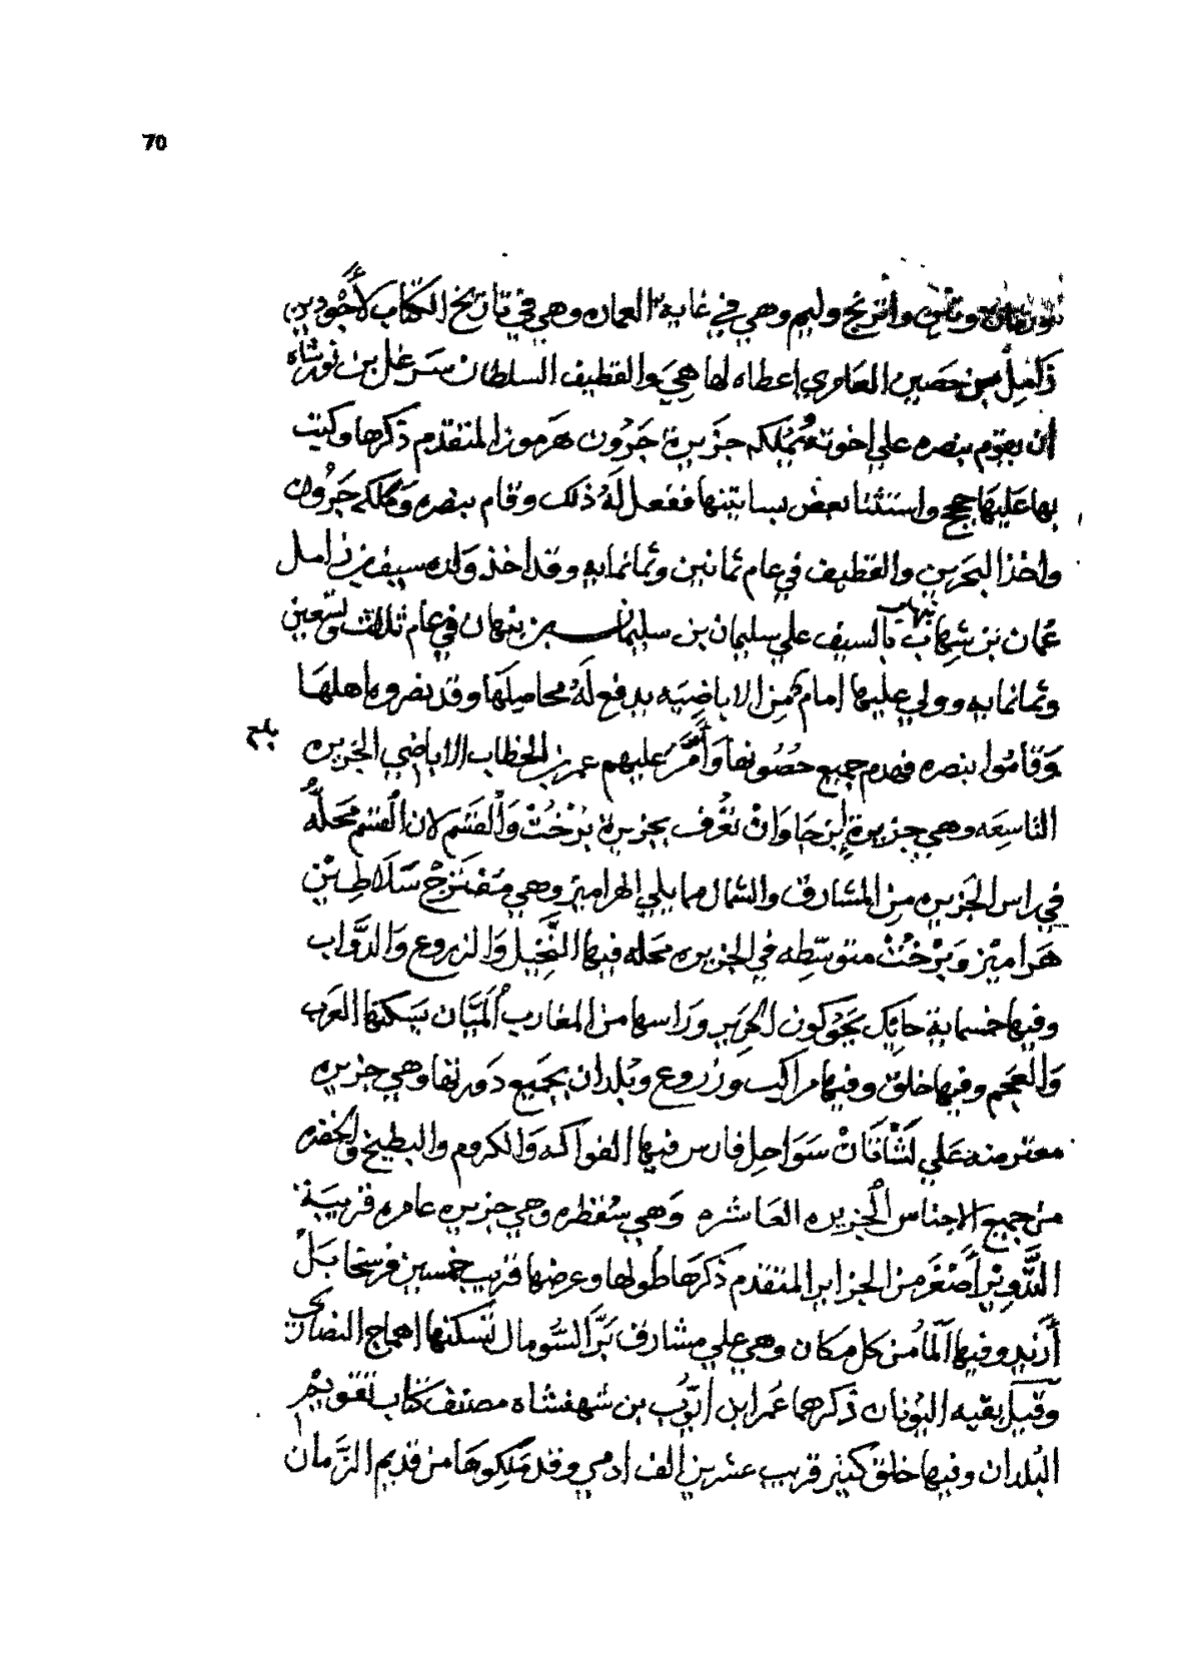 70
ورمان وتين واترنج وليم وهي في غاية العماره وهي في تاريخ الكتاب لأجود بن
زَامِلْ بن حصين العامري اعطاه لها هي والقطيف السلطان سَرغل بن نورشاه
ان يقوم بنصره علي اخوته ويُملكه جزيرة جَرُون هَرموز المتقدم ذكرها وكبت
بها عَليهَا حجج واستثنا بعض بساتينها ففعل لَهُ ذلك وقام بنصره وَمَلكه جَرُون
واخذ البحَرين والقطيف في عام ثمانين وثمانمايه وقد اخذ وَلده سيف بن زامل
عُمان بن شِهَاب نبهان بالسيف علي سليمان بن سليمان بن نبهان في عام ثلاث وتسعين
وثمانمايه وولي عليها امام من الاباضِيَه يدفع لَهُ محاصيلهَا وقد نصروه اهلهَا
وَقَامُوا بنصره فهدم جميع حصُونها وَأَمَّرَ عليهم عمر بن الخطاب الاباضي الجزيره
بلح
التاسِعَه وهي جزيرة اِبن جَاوَانْ تعُرف بجزيرة بُرْخُتْ وَالقَسَم لان القسم مَحلهُ
في راس الجَزيره مِن المشارق والشمال مما يلي الهراميز وهي مُتفَرّجْ سَلَاطِيْن
هَراميْز وَبرُخُتْ متوسّطِه في الجزيره محَله فيها النَّخِيل وَالزروع وَالدَّوَاب
وفيها خمسماية حَائِك يَحُوكون الحَرير وَراسها من المغارب المَيَّان يَسكنها العَرب
وَالعَجم وفيها خلق وفيها مراكب وزُروع وبُلدان بجَميع دَورتها وهي جزيره
معترضه عَلي لشْتَاقَانْ سَوَاحِل فارس فيها الفواكه وَالكروم والبطيخ والخضره
من جميع الاجناس الجزيره العَاشره وَهي سُقطره وهي جزيره عامره قريبَة
التَّدوِير أَصْغَر مِن الجزاير المتقدم ذكرهَا طُولها وعرضها قريب خمسين فرسخا بَلْ
أَزيد وفيها اَلمأُ من كل مَكان وهي علي مشارق بَرّ السُّومال تسكنها اهماج النصارى
وقيل بقيه اليُونان ذكرهما عُمر ابن ايّوب بن شهنشاه مصنف كتاب تقويم
البُلدان وفيها خلق كثير قريب عشرين الف ادمي وقد مَلكوهَا من قديم الزَّمان